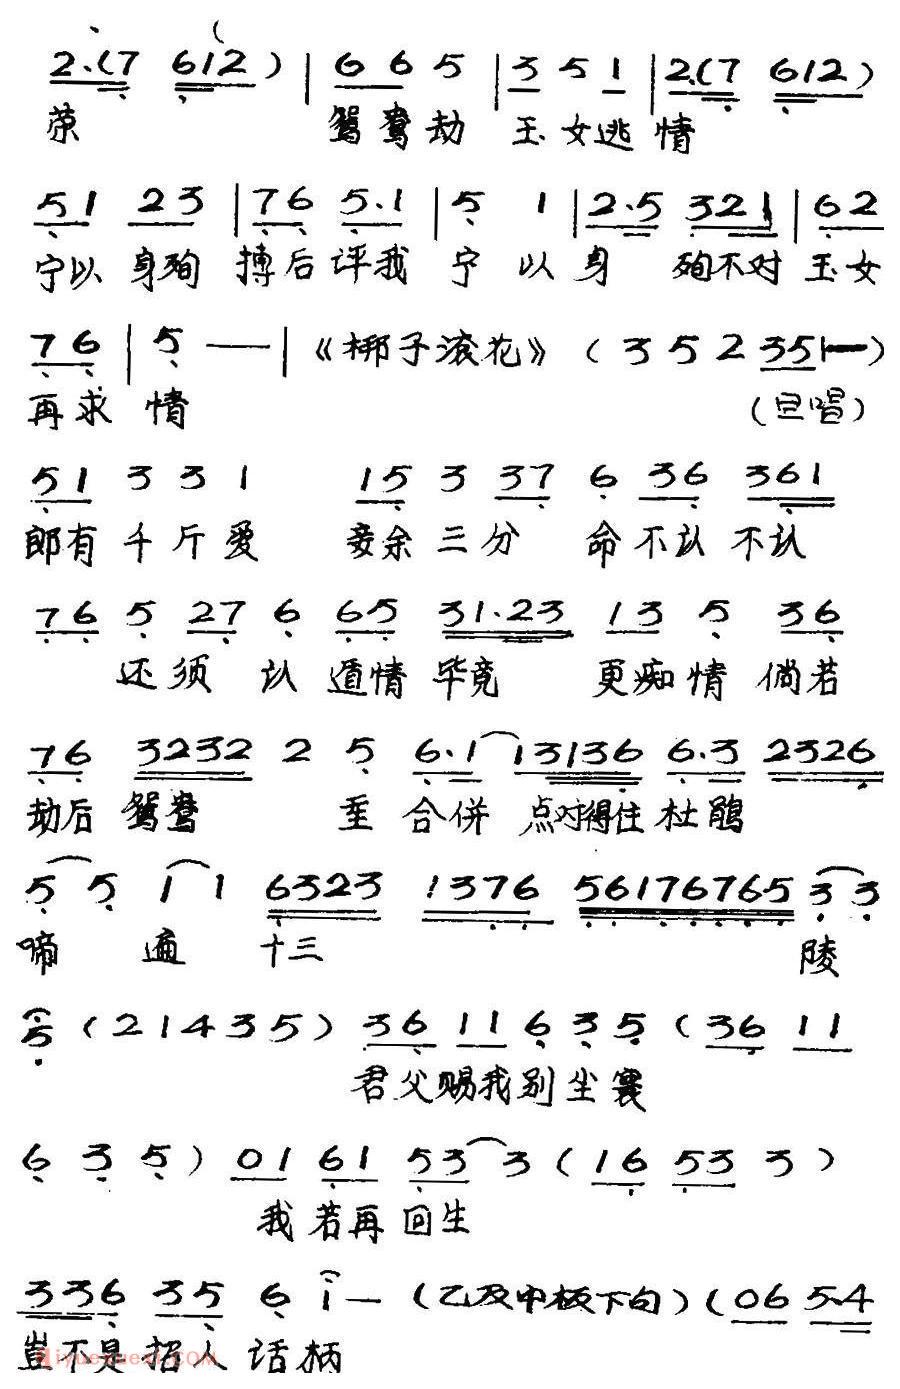 2·(7 612) | 6 6 5 | 3 5 1 | 2·(7 612)
荥 鸳鸯劫 玉女逃情
51 23 | 76 5·1 | 5 1 | 2·5 321 | 62
宁以身殉 搏后评我 宁以身 殉不对 玉女
76 | 5 — | 《梆子滚花》 ( 3 5 2 35 1— )
再求情 (旦唱)
51 3 3 1 15 3 37 6 36 361
郎有千斤爱 妾余三分 命不认不认
76 5 27 6 65 31·23 13 5 36
还须认遁情毕竟 更痴情倘若
76 3232 2 5 6·1 13136 6·3 2326
劫后鸳鸯 重合併 点对得住杜鹃
5 5 1 1 6323 1376 56176765 3 3
啼遍十三 陵
5 (21435) 36 11 6 3 5 (36 11
君父赐我别尘寰
6 3 5) 01 61 53 3 (16 53 3)
我若再回生
336 35 6 i — (乙及中板下句) (06 5·4
岂不是招人话柄